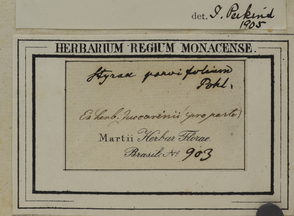 det. J. Perkins
1905
HERBARIUM REGIUM MONACENSE.
Styrax parvifolium
Pohl.
Ex herb. Zuccarinii (pro parte)
Martii Herbar. Florae
Brasil. No 903